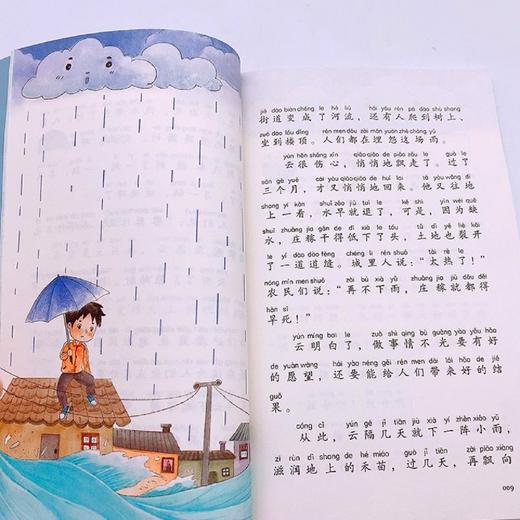 jiē dào biàn chéng le hé liú hái yǒu rén pá dào shù shang
街道变成了河流，还有人爬到树上、
zuò dào lóu dǐng rén men dōu zài mán yuàn zhè cháng yǔ
坐到楼顶。人们都在埋怨这场雨。
yún hěn shāng xīn qiāo qiāo de piāo zǒu le guò le
云很伤心，悄悄地飘走了。过了
sān gè yuè cái yòu qiāo qiāo de huí lai tā yòu wǎng dì
三个月，才又悄悄地回来。他又往地
shang yí kàn shuǐ zǎo jiù tuì le kě shì yīn wèi quē
上一看，水早就退了，可是，因为缺
shuǐ zhuāng jia gān de dī xià le tóu tǔ dì yě liè kāi
水，庄稼干得低下了头，土地也裂开
le yí dào dào fèng chéng li rén shuō tài rè le
了一道道缝。城里人说：“太热了！”
nóng mín men shuō zài bú xià yǔ zhuāng jia jiù dōu děi
农民们说：“再不下雨，庄稼就都得
hàn sǐ
旱死！”
yún míng bai le zuò shì qing bù guāng yào yǒu hǎo
云明白了，做事情不光要有好
de yuàn wàng hái yào néng gěi rén men dài lái hǎo de jié
的愿望，还要能给人们带来好的结
guǒ
果。
cóng cǐ yún gé jǐ tiān jiù xià yí zhèn xiǎo yǔ
从此，云隔几天就下一阵小雨，
zī rùn dì shang de hé miáo guò jǐ tiān zài piāo xiàng
滋润地上的禾苗，过几天，再飘向
009